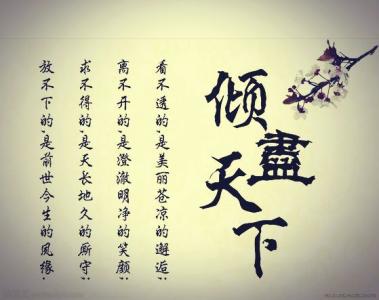 倾盡天下
看不透的,是美丽苍凉的邂逅;
离不开的,是澄澈明净的笑颜;
求不得的,是天长地久的厮守;
放不下的,是前世今生的風缘;